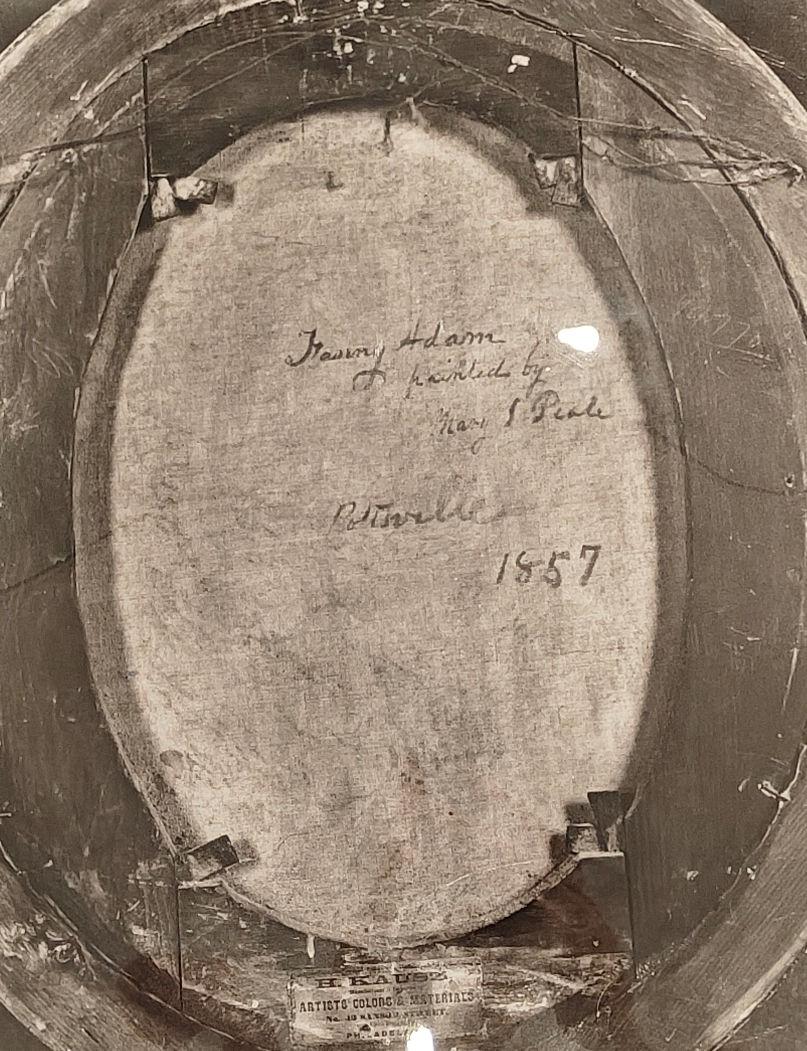 Fanny Adam
painted by
Mary J Peale
Pottsville
1857
H. KAUSE
ARTISTS COLORS & MATERIALS
No.
STREET,
PHILADEL